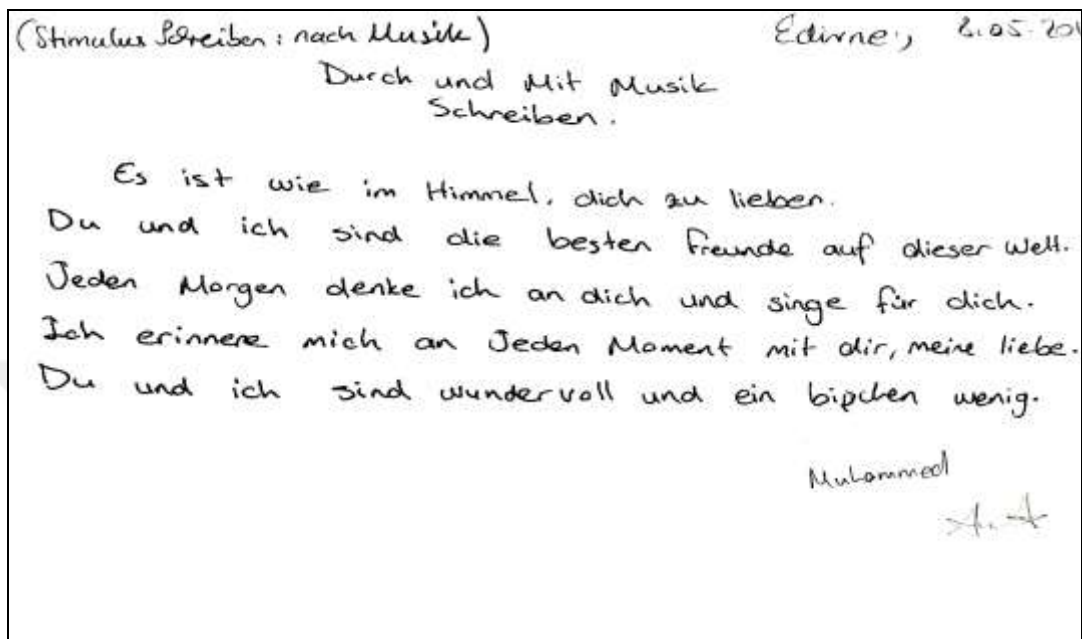 (Stimulus Schreiben : nach Musik) Edirne, 8.05.201
Durch und Mit Musik
Schreiben.
Es ist wie im Himmel, dich zu lieben.
Du und ich sind die besten Freunde auf dieser Welt.
Jeden Morgen denke ich an dich und singe für dich.
Ich erinnere mich an Jeden Moment mit dir, meine liebe.
Du und ich sind wundervoll und ein bipchen wenig.
Muhammed
A. A